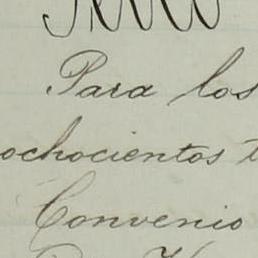 Para los
ochocientos
Convenio